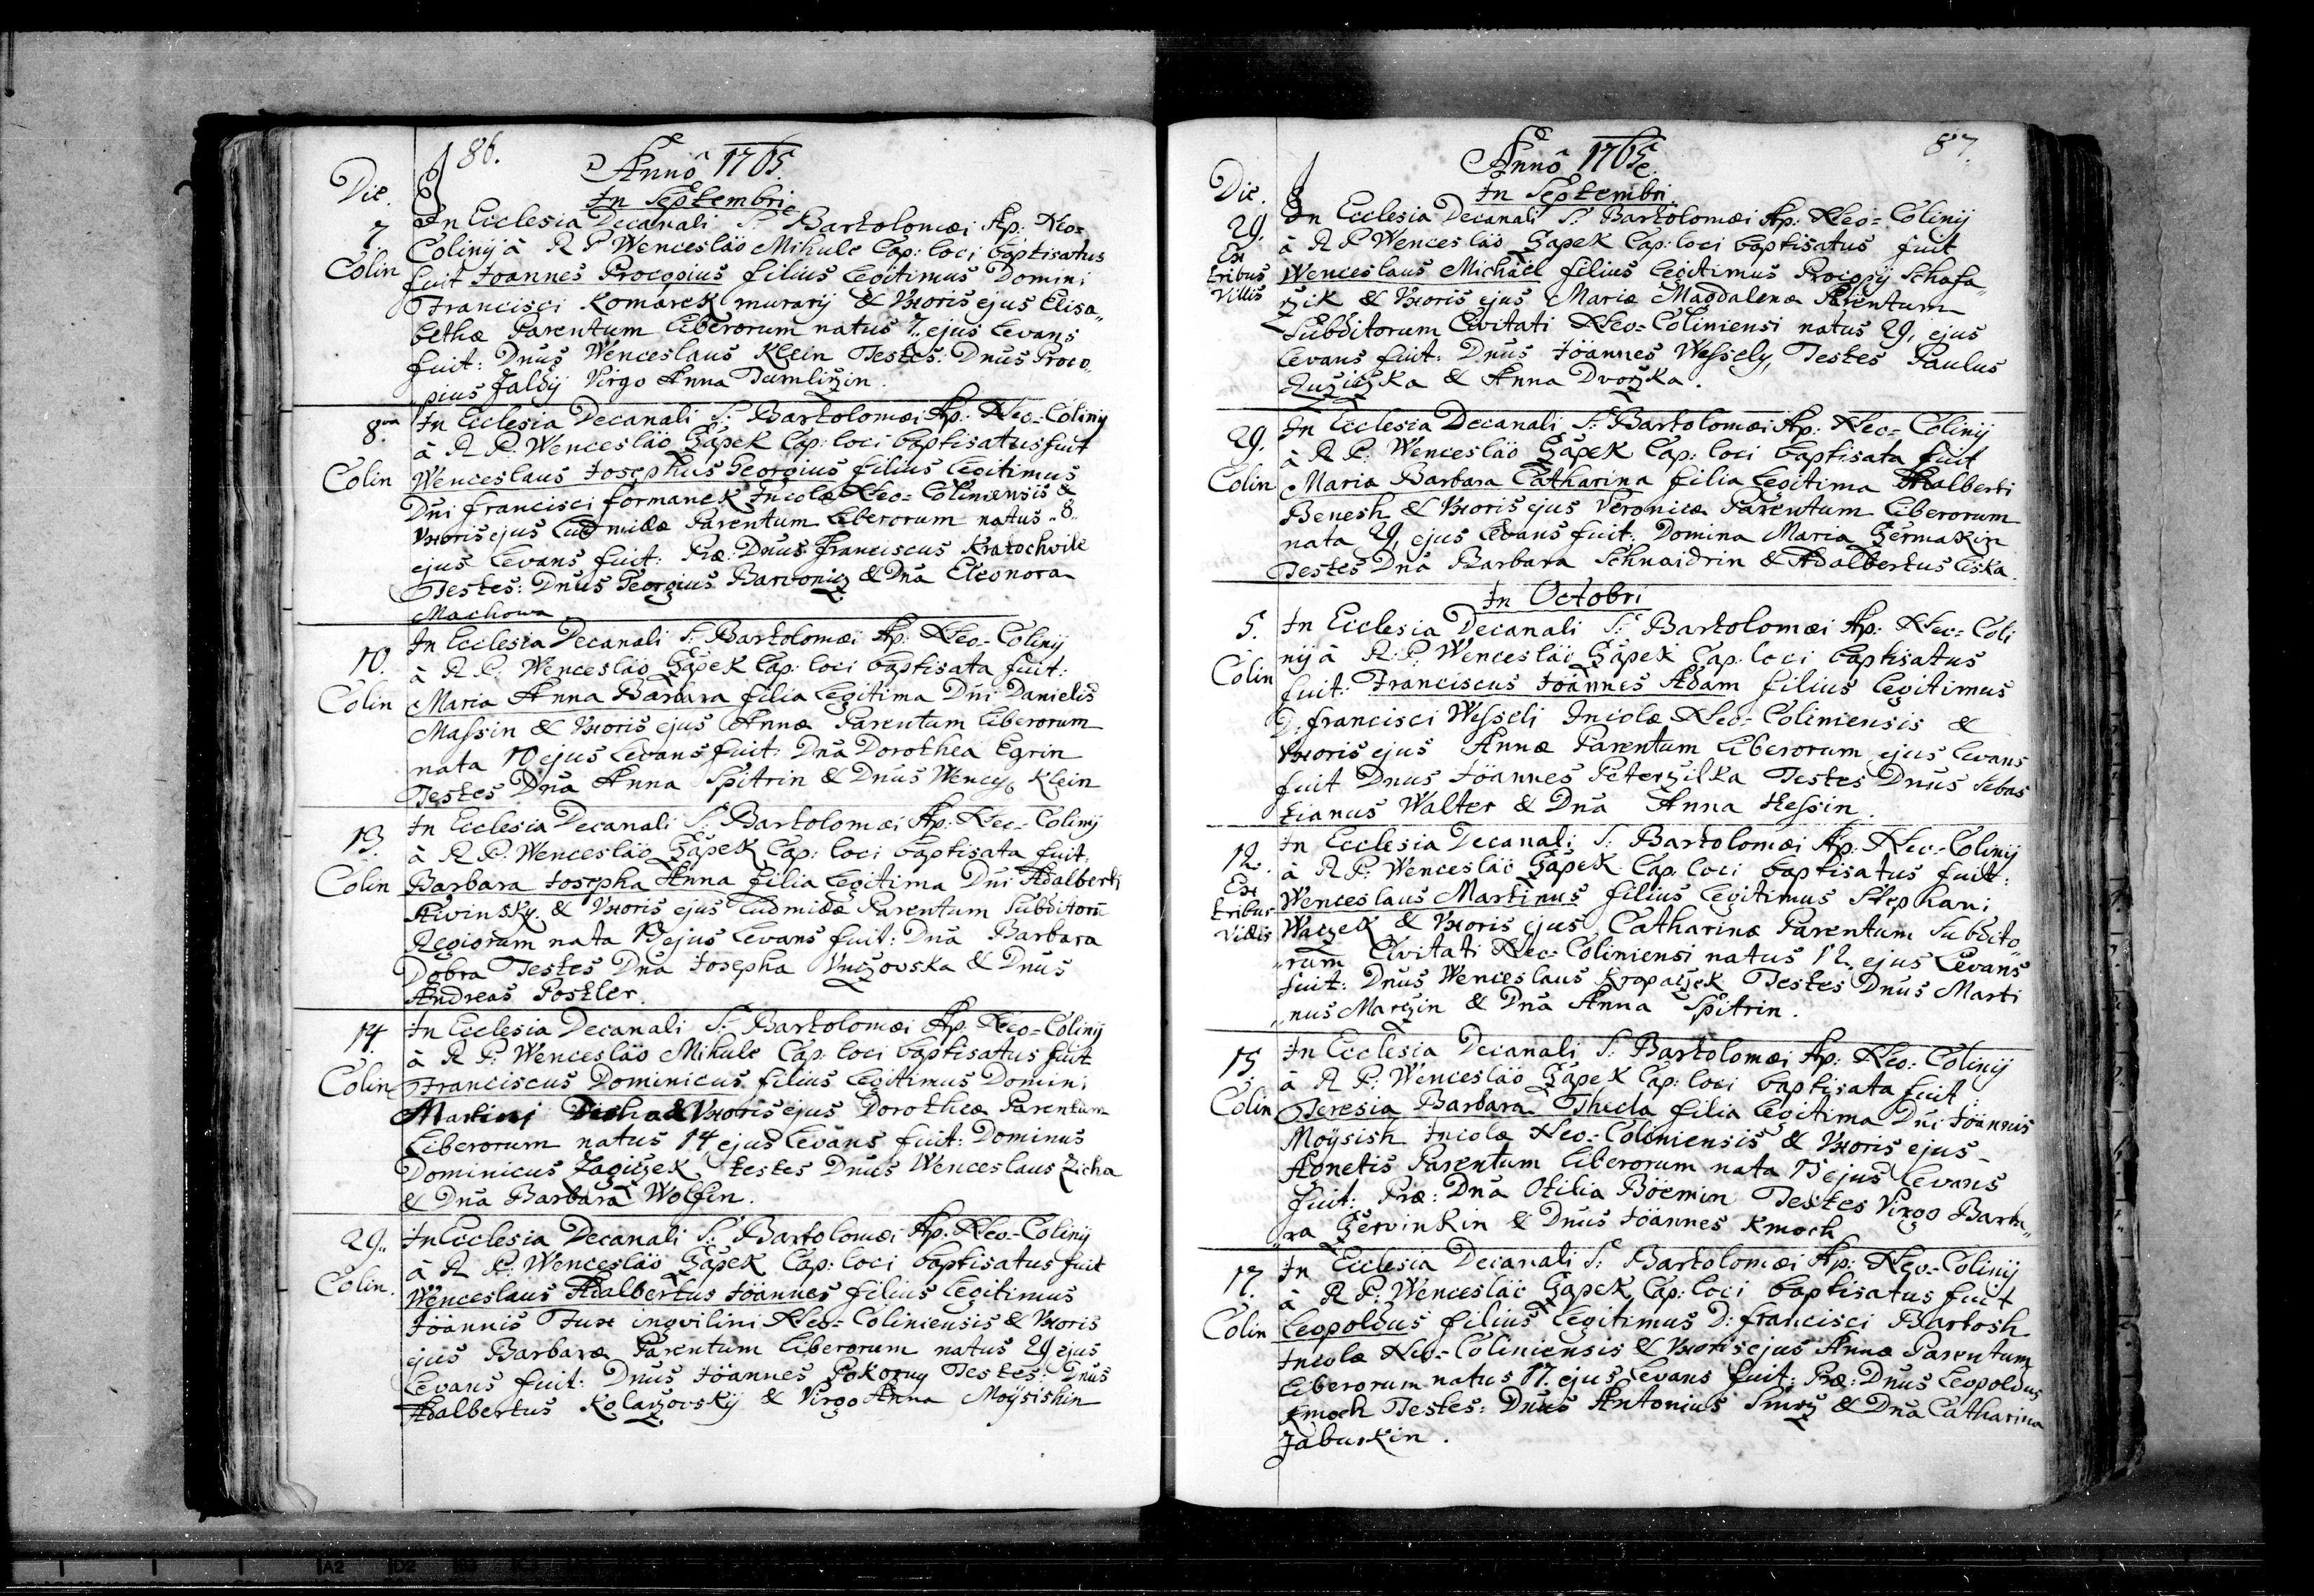 86.
Annô 1765.
Die.
In Septembri
7.
Colin
In Ecclesia Decanali S: Bartolomæi Ap: Neo=
Colinÿ à R P Wencesläo Mihule Cap: loci baptisatus
fuit Joannes Procopius filius legitimus Domini
Francisci Komarek murarÿ & Uxoris ejus Elisa„
bethæ Parentum liberorum natus 7. ejus levans
fuit: Dnus Wenceslaus Klein Testes: Dnus Proco„
„pius Jaldÿ Virgo Anna Tumlirzin.
8va
Colin
In Ecclesia Decanali S: Bartolomæi Ap: Neo-Colinÿ
à R P: Wencesläo Czapek Cap: loci baptisatus fuit
Wenceslaus Josephus Georgius filius legitimus
Dni francisci formanek Incolæ Neo=Coliniensis &
Uxoris ejus Ludmilæ Parentum liberorum natus „8„
ejus levans fuit: Præ: Dnus Franciscus Kratochvile
Testes: Dnus Georgius Bartonicz & Dna Eleonora
Machowa
10.
Colin
In Ecclesia Decanali S: Bartolomæi Ap: Neo-Colinÿ
à R P: Wencesläo Czapek Cap: loci baptisata fuit:
Maria Anna Barbara filia legitima Dni Danielis
Massin & Uxoris ejus Annæ Parentum liberorum
nata 10 ejus levans fuit: Dna Dorothea Egrin
Testes Dna Anna Spitrin & Dnus Wences Klein
13.
Colin
In Ecclesia Decanali S: Bartolomæi Ap: Neo-Colinÿ
à R P: Wencesläo Czapek Cap: loci baptisata fuit:
Barbara Josepha Anna filia legitima Dni Adalberti
Skvinsky & Uxoris ejus Ludmilæ Parentum Subditorū
Regiorum nata 13 ejus levans fuit: Dna Barbara
Dobra Testes Dna Josepha & Dnus
Andreas Postler.
14.
Colin
In Ecclesia Decanali S: Bartolomæi Ap: Neo-Colinÿ
à R P: Wencesläo Mihule Cap: loci baptisatus fuit
Franciscus Dominicus filius legitimus Domini
Martini & Uxoris ejus Dorotheæ Parentum
liberorum natus 14 ejus levans fuit: Dominus
Dominicus Zagiczek testes Dnus Wenceslaus Zicha
& Dna Barbara Wolfin.
29.
Colin.
In Ecclesia Decanali S: Bartolomæi Ap: Neo-Colinÿ
à R P: Wencesläo Czapek Cap: loci baptisatus fuit
Wenceslaus Adalbertus Jöannes filius legitimus
Jöannis Fux inqvilini Neo-Coliniensis & Uxoris
ejus Barbaræ Parentum liberorum natus 29 ejus
levans fuit: Dnus Jöannes Pokorny Testes: Dnus
Adalbertus Kolarzovskÿ & Virgo Anna Moÿsishin
87.
Annô 1765.
Die.
In Septembri
29.
Ex
tribus
Villis
In Ecclesia Decanali S: Bartolomæi Ap: Neo=Colinÿ
à R P: Wencesläo Czapek Cap: loci baptisatus fuit
Wenceslaus Michäel filius legitimus Procopÿ Schafa„
rzik & Uxoris ejus Mariæ Magdalenæ Parentum
Subditorum Civitati Neo=Coliniensi natus 29. ejus
levans fuit: Dnus Jöannes Wessely, Testes Paulus
Ruziczka & Anna Dvorzka.
29.
Colin
In Ecclesia Decanali S: Bartolomæi Ap: Neo-Colinÿ
à R P: Wencesläo Czapek Cap: loci baptisata fuit
Maria Barbara Catharina filia legitima Adalberti
Benesh & Uxoris ejus Veronicæ Parentum liberorum
nata 29. ejus levans fuit: Domina Maria Czermakin
Testes Dna Barbara Schnaidrin & Adalbertus Liska.
In Octobri
5.
Colin
In Ecclesia Decanali S: Bartolomæi Ap: Neo=Coli
nÿ à R: P: Wencesläo Czapek Cap: loci baptisatus
fuit: Franciscus Jöannes Adam filius legitimus
D: francisci Wesseli Incolæ Neo-Coliniensis &
Uxoris ejus Annæ Parentum liberorum ejus levans
fuit Dnus Jöannes Peterzilka Testes Dnus Sebas
tianus Walter & Dna Anna Hessin.
12.
Ex
tribus
Villis
In Ecclesia Decanali S: Bartolomæi Ap: Neo-Colinÿ
à R P: Wencesläo Czapek Cap: loci baptisatus fuit:
Wenceslaus Martinus filius legitimus Stephani
Waczek & Uxoris ejus Catharinæ Parentum Subdito„
„rum Civitati Neo-Coliniensi natus 12. ejus levans
fuit: Dnus Wenceslaus Kropaczek Testes Dnus Marti
„nus Marzin & Dna Anna Spitrin.
15.
Colin
In Ecclesia Decanali S: Bartolomæi Ap: Neo-Colinÿ
à R P: Wencesläo Czapek Cap: loci baptisata fuit:
Teresia Barbara Thecla filia legitima Dni Jöannis
Moÿsish Incolæ Neo-Coliniensis & Uxoris ejus
Agnetis Parentum liberorum nata 15 ejus levans
fuit: Præ: Dna Otilia Böemin Testes Virgo Barba„
„ra Czervinkin & Dnus Jöannes Kmoch
17.
Colin
In Ecclesia Decanali S: Bartolomæi Ap: Neo-Colinÿ
à R P: Wencesläo Czapek Cap: loci baptisatus fuit
Leopoldus filius legitimus D: francisci Bartosh
Incolæ Neo-Coliniensis & Uxoris ejus Annæ Parentum
liberorum natus 17. ejus levans fuit: Præ: Dnus Leopoldus
Kmoch Testes: Dnus Antonius Smrz & Dna Catharina
Jaburkin.
A2
D2